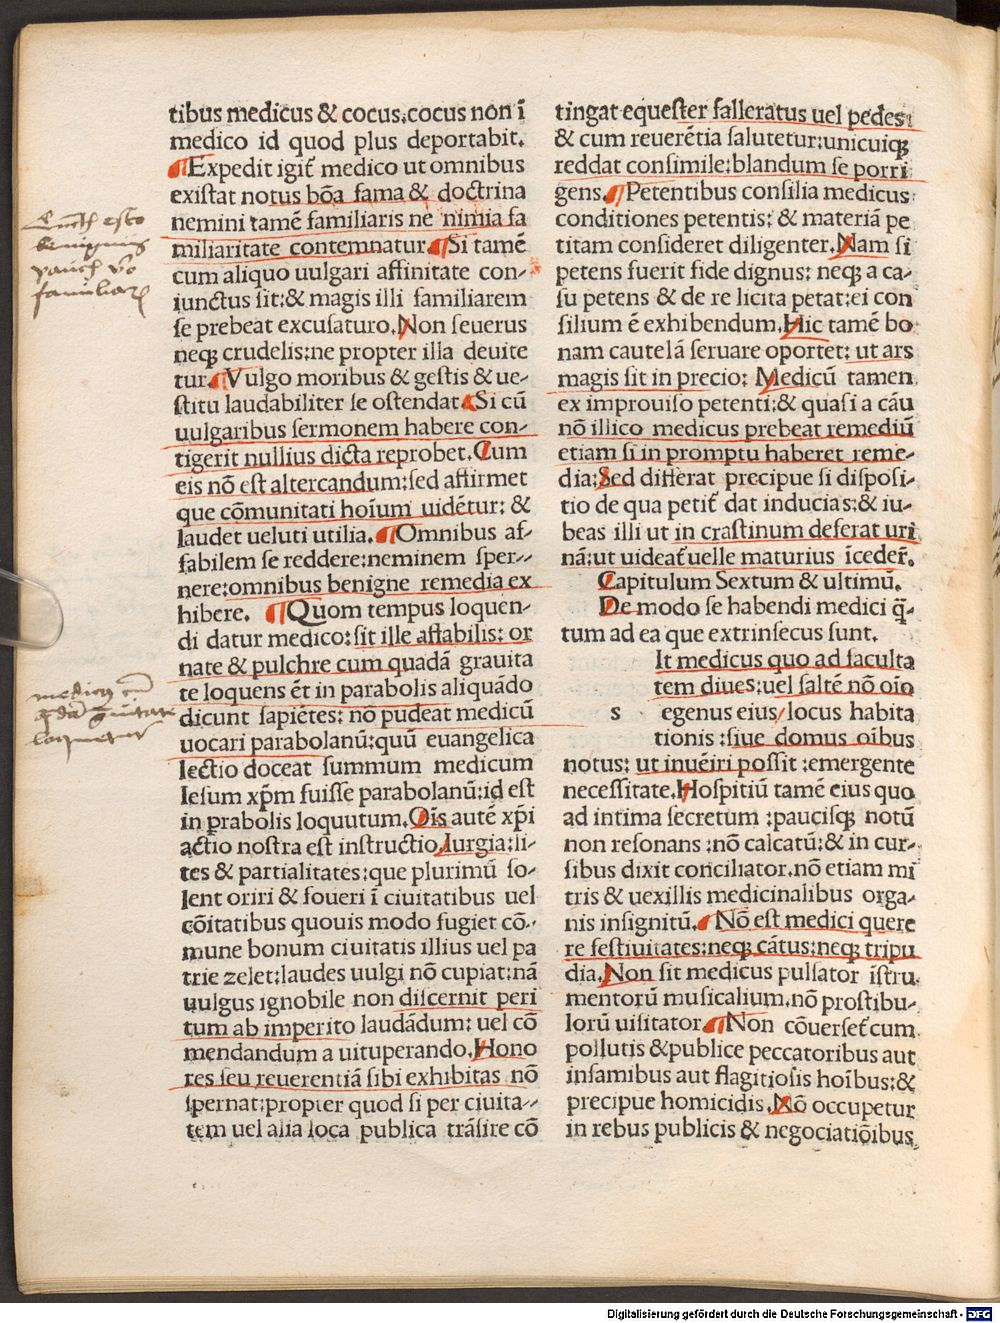 tibus medicus & cocus:cocus non ī
medico id quod plus deportabit.
¶Expedit igit̄ medico ut omnibus
existat notus bōa fama & doctrina
nemini tamē familiaris ne nimia fa
miliaritate contemnatur.¶Si tamē
cum aliquo uulgari affinitate con-
iunctus sit:& magis illi familiarem
se prebeat excusaturo.Non seuerus
neqꝫ crudelis:ne propter illa deuite
tur.¶Vulgo moribus & gestis & ue-
stitu laudabiliter se ostendat.¶Si cū
uulgaribus sermonem habere con-
tigerit nullius dicta reprobet.Cum
eis nō est altercandum:sed affirmet
que cōmunitati hoīum uidētur: &
laudet ueluti utilia.¶Omnibus af-
fabilem se reddere:neminem sper-
nere:omnibus benigne remedia ex
hibere. ¶Quom tempus loquen-
di datur medico:sit ille affabilis: or
nate & pulchre cum quadā grauita
te loquens ēt in parabolis aliquādo
dicunt sapiētes: nō pudeat medicū
uocari parabolanū:quū euangelica
lectio doceat summum medicum
Iesum xp̄m fuisse parabolanū:id est
in prabolis loquutum.Oīs autē xp̄i
actio nostra est instructio.Iurgia:li-
tes & partialitates:que plurimū so-
lent oriri & foueri ī ciuitatibus uel
cōitatibus quouis modo fugiet cō-
mune bonum ciuitatis illius uel pa
trie zelet:laudes uulgi nō cupiat:nā
uulgus ignobile non discernit peri
tum ab imperito laudādum: uel cō
mendandum a uituperando.Hono
res seu reuerentiā sibi exhibitas nō
spernat:propter quod si per ciuita-
tem uel alia loca publica trāsire cō
tingat equester falleratus uel pedes:
& cum reuerētia salutetur:unicuiqꝫ
reddat consimile:blandum se porri
gens.¶Petentibus consilia medicus
conditiones petentis: & materiā pe
titam consideret diligenter.Nam si
petens fuerit fide dignus: neqꝫ a ca-
su petens & de re licita petat:ei con
silium ē exhibendum.Hic tamē bo
nam cautelā seruare oportet: ut ars
magis sit in precio: Medicū tamen
ex improuiso petenti:& quasi a cāu
nō illico medicus prebeat remediū
etiam si in promptu haberet reme-
dia:Sed differat precipue si disposi-
tio de qua petit̄ dat inducias:& iu-
beas illi ut in crastinum deferat uri
nā:ut uideat̄ uelle maturius īceder̄.
Capitulum Sextum & ultimū.
De modo se habendi medici q̄-
tum ad ea que extrinsecus sunt.
It medicus quo ad faculta
tem diues:uel saltē nō oīo
s egenus eius/locus habita
tionis :siue domus oībus
notus: ut inuēiri possit :emergente
necessitate.Hospitiū tamē eius quo
ad intima secretum :paucisqꝫ notū
non resonans :nō calcatū:& in cur-
sibus dixit conciliator.nō etiam mi
tris & uexillis medicinalibus orga-
nis insignitū.¶Nō est medici quere
re festiuitates:neqꝫ cātus:neqꝫ tripu
dia.Non sit medicus pulsator īstru
mentorū musicalium.nō prostibu-
lorū uisitator.¶Non cōuerset̄ cum
pollutis & publice peccatoribus aut
infamibus aut flagitiosis hoībus:&
precipue homicidis.Nō occupetur
in rebus publicis & negociatiōibus
esto
Digitalisierung gefördert durch die Deutsche Forschungsgemeinschaft - DFG